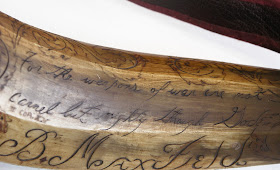 for the weapons of war are not
carnel but mighty through God
B. Maxfield